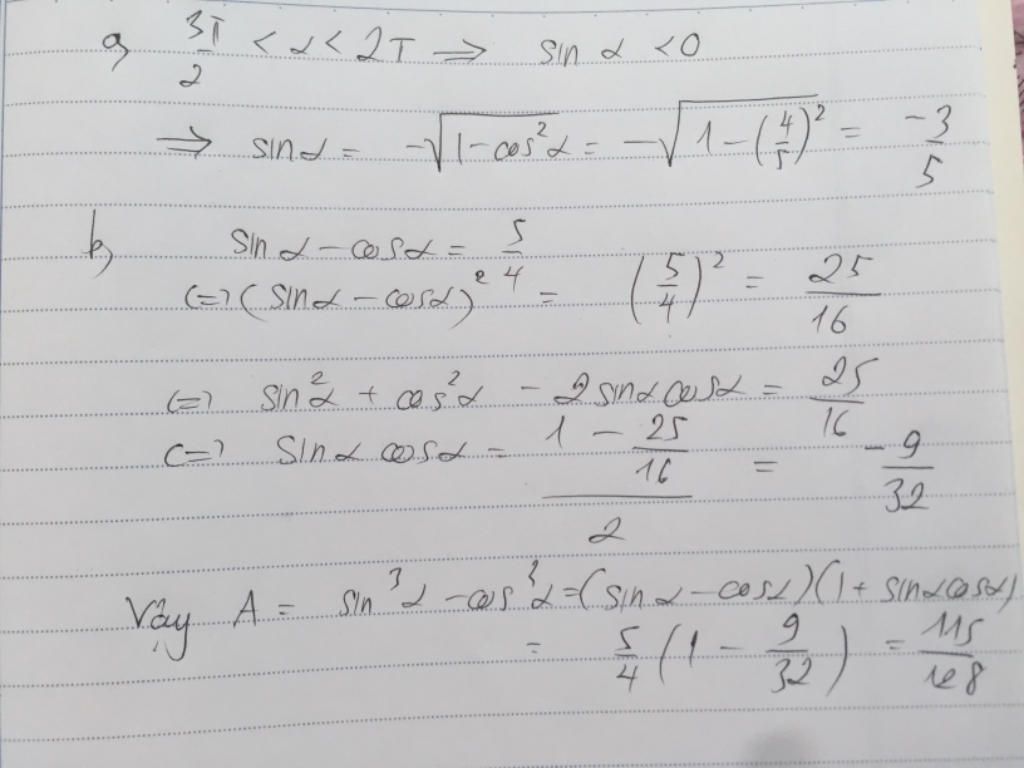 a, 3π/2 < α < 2π ⇒ sin α < 0
⇒ sin α = -√(1-cos²α) = -√(1-(4/5)²) = -3/5
b, sin α - cos α = 5/4
(=) (sin α - cos α)² = (5/4)² = 25/16
(=) sin²α + cos²α - 2 sin α cos α = 25/16
(=) sin α cos α = (1 - 25/16)/2 = -9/32
Vậy A = sin³α - cos³α = (sin α - cos α)(1 + sin α cos α)
= 5/4 (1 - 9/32) = 115/128